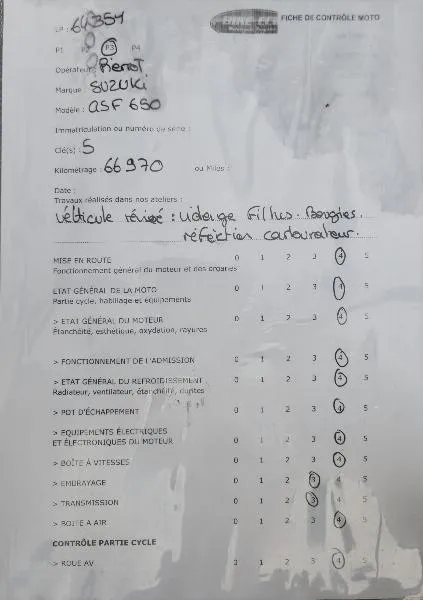 FICHE DE CONTRÔLE MOTO
LP : 64354
P1 P2 P3 P4
Opérateur : Pierrot
Marque : SUZUKI
Modèle : GSF 650
Immatriculation ou numéro de série :
Clé(s) : 5
Kilométrage : 66970 ou Miles :
Date :
Travaux réalisés dans nos ateliers :
Véhicule révisé : Vidange Filtres. Bougies.
réfection carburateur.
MISE EN ROUTE 0 1 2 3 4 5
Fonctionnement général du moteur et des organes
ETAT GÉNÉRAL DE LA MOTO 0 1 2 3 4 5
Partie cycle, habillage et équipements
> ETAT GÉNÉRAL DU MOTEUR 0 1 2 3 4 5
Étanchéité, esthétique, oxydation, rayures
> FONCTIONNEMENT DE L'ADMISSION 0 1 2 3 4 5
> ETAT GÉNÉRAL DU REFROIDISSEMENT 0 1 2 3 4 5
Radiateur, ventilateur, étanchéité, durites
> POT D'ÉCHAPPEMENT 0 1 2 3 4 5
> EQUIPEMENTS ÉLECTRIQUES
ET ÉLECTRONIQUES DU MOTEUR 0 1 2 3 4 5
> BOÎTE À VITESSES 0 1 2 3 4 5
> EMBRAYAGE 0 1 2 3 4 5
> TRANSMISSION 0 1 2 3 4 5
> BOITE A AIR 0 1 2 3 4 5
CONTRÔLE PARTIE CYCLE
> ROUE AV 0 1 2 3 4 5